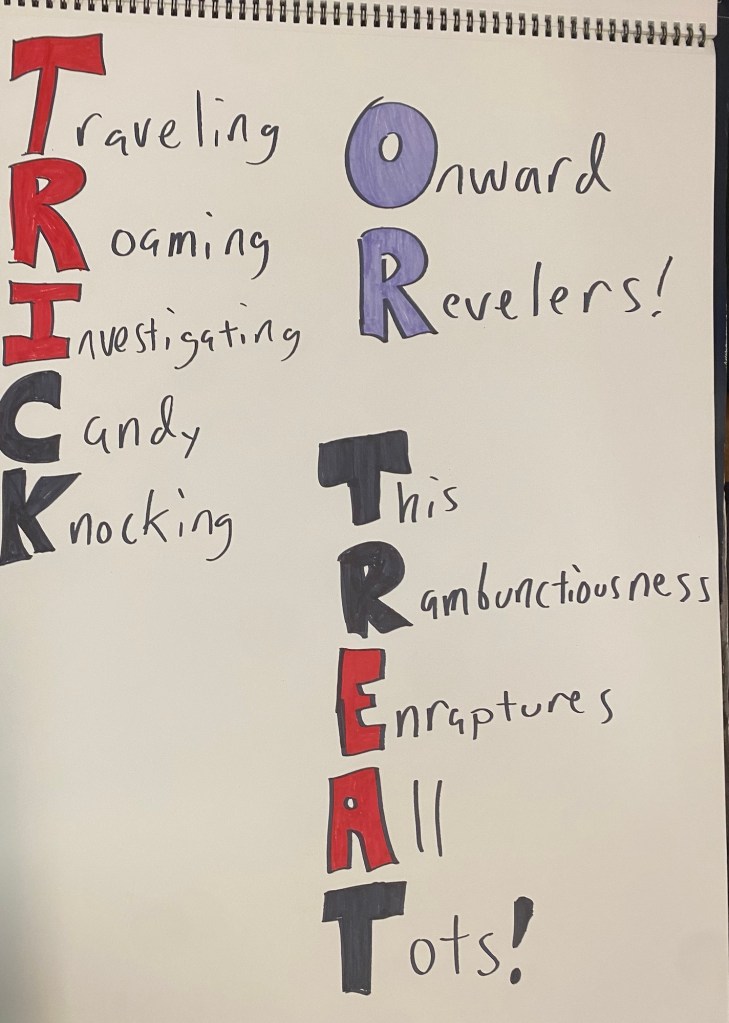 Traveling
Roaming
Investigating
Candy
Knocking
Onward
Revelers!
This
Rambunctiousness
Enraptures
All
Tots!